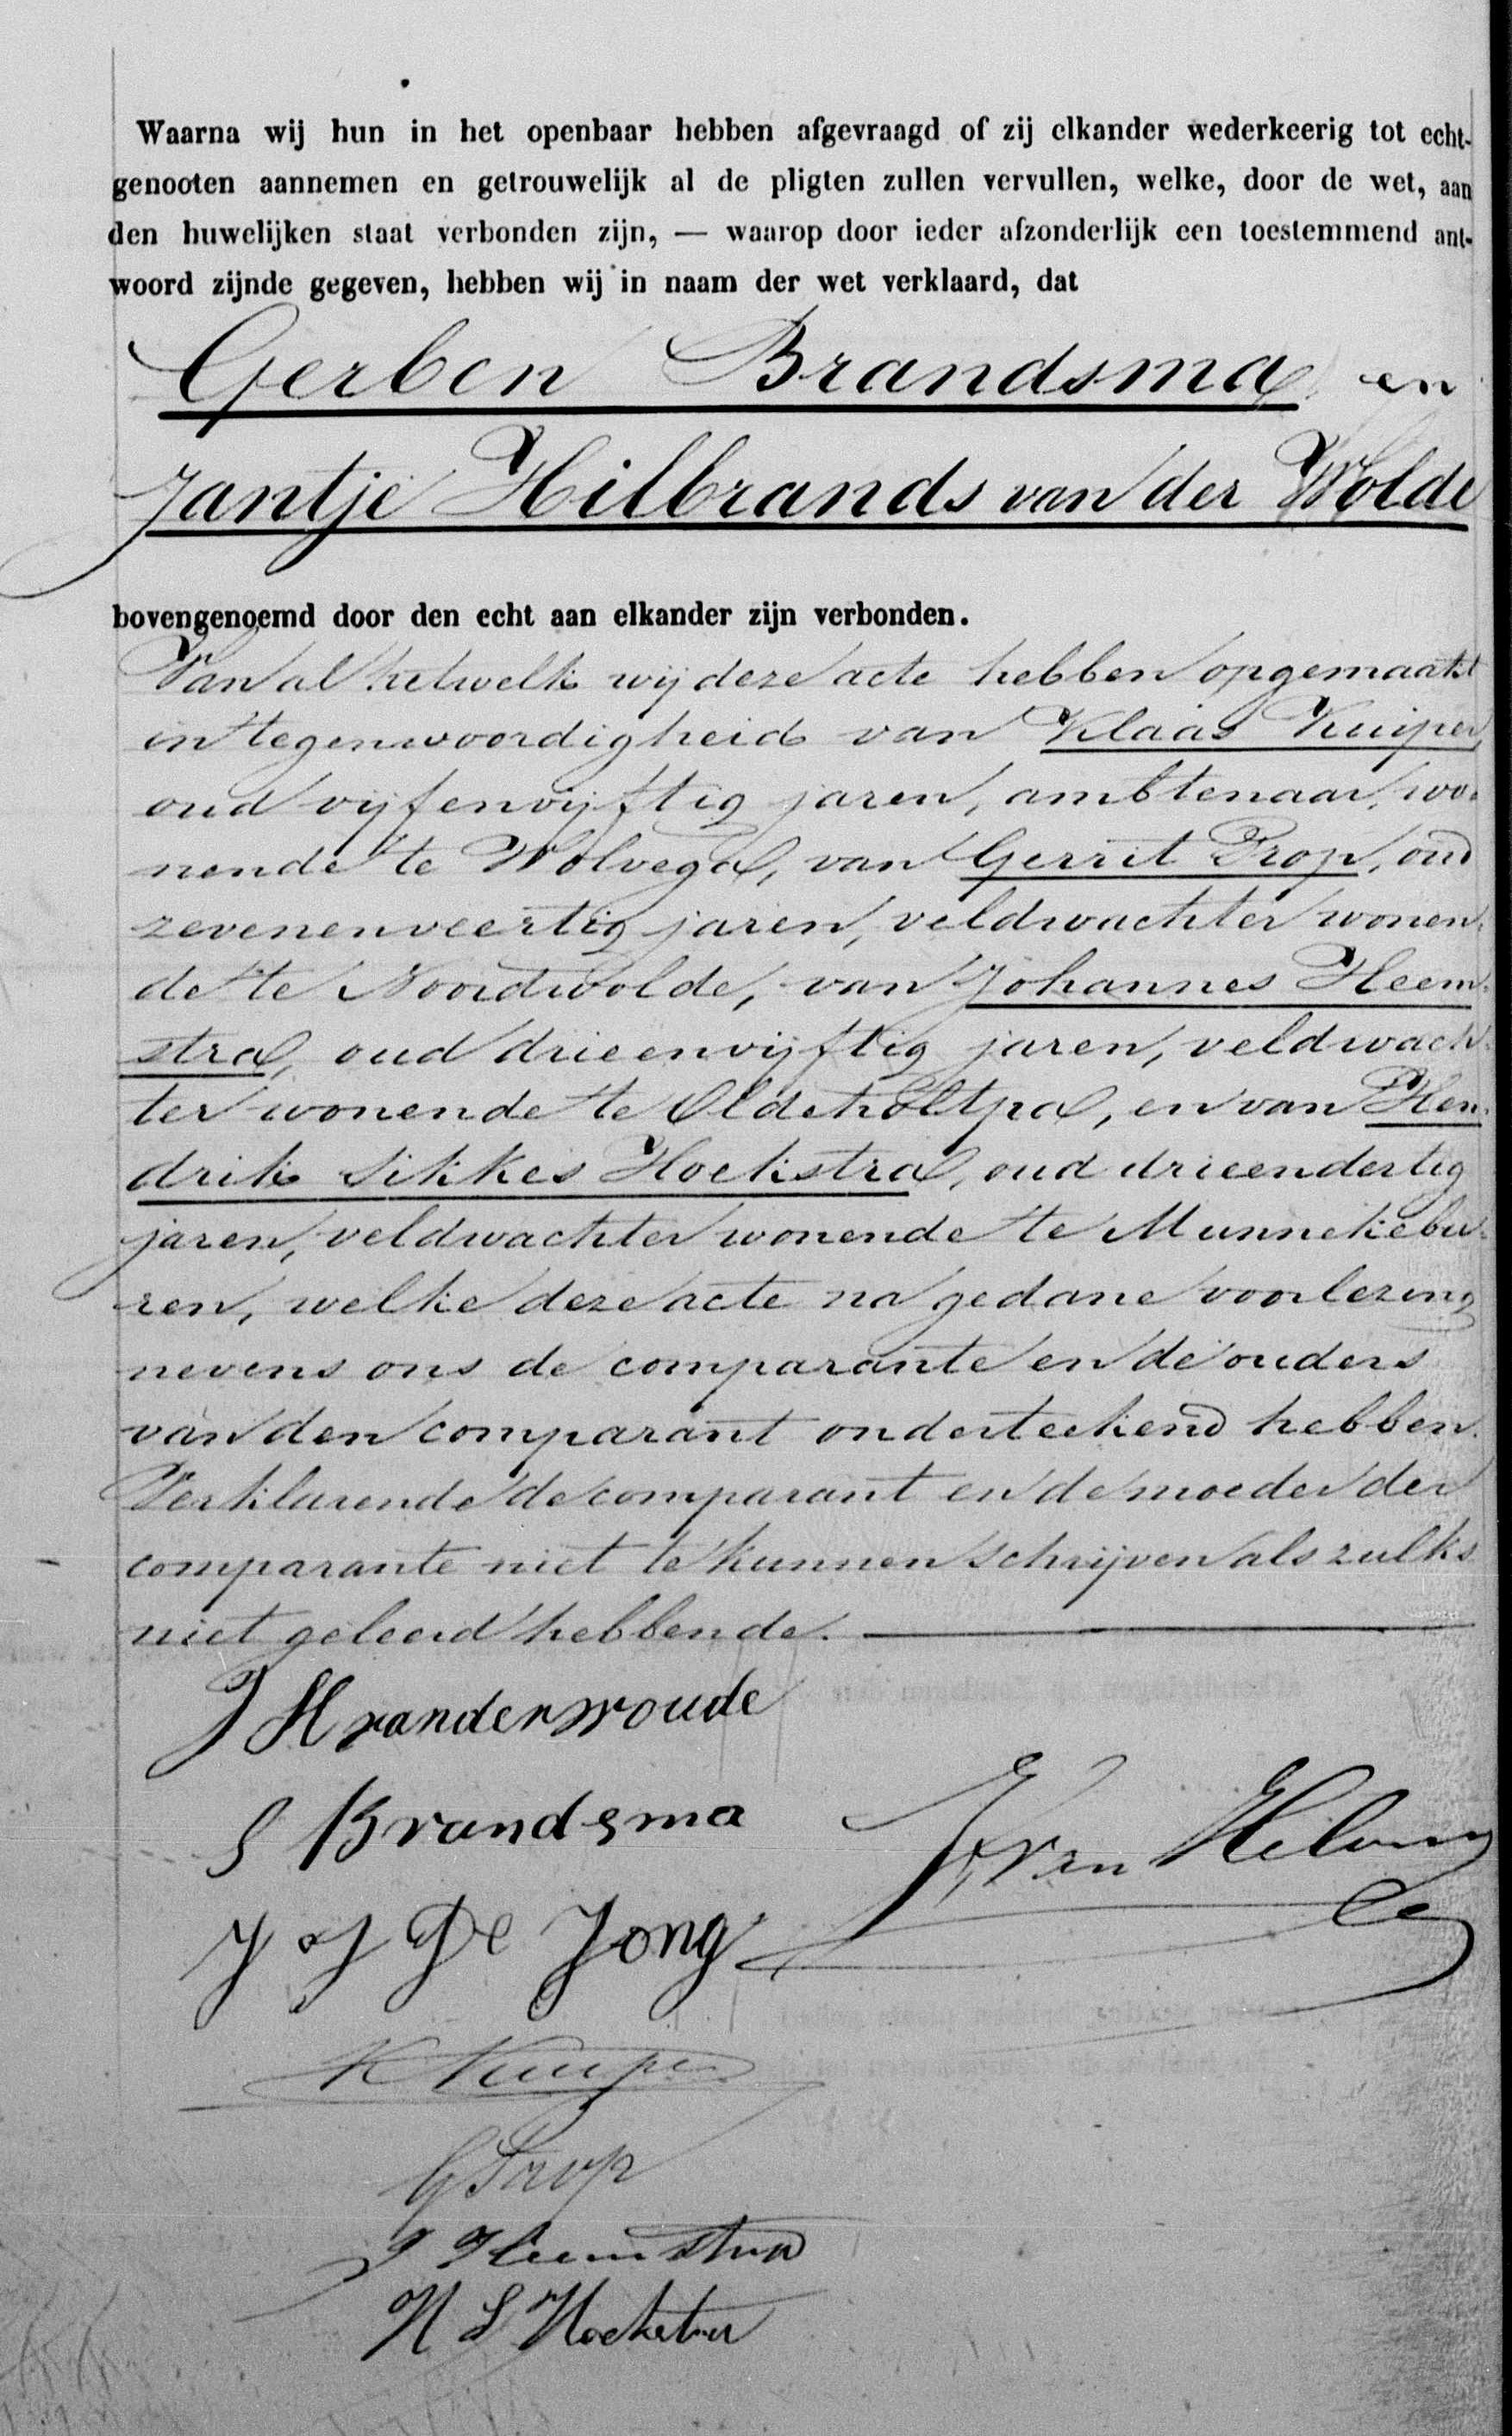 Waarna wij hun in het openbaar hebben afgevraagd of zij elkander wederkeerig tot echt-
genooten aannemen en getrouwelijk al de pligten zullen vervullen, welke, door de wet, aan
den huwelijken staat verbonden zijn, — waarop door ieder afzonderlijk een toestemmend ant-
woord zijnde gegeven, hebben wij in naam der wet verklaard, dat
Gerben Brandsma en
Jantje Hilbrands van der Wolde
bovengenoemd door den echt aan elkander zijn verbonden.
Van al hetwelk wij deze acte hebben opgemaakt
in tegenwoordigheid van Klaas Kuiper,
oud vijfenvijftig jaren, ambtenaar, wo-
nende te Wolvega, van Gerrit Prop, oud
zevenenveertig jaren, veldwachter wonen-
de te Noordwolde, van Johannes Heem-
stra, oud drieenvijftig jaren, veldwach-
ter wonende te Oldeholtpa, en van Hen-
drik Sikkes Hoekstra, oud drieendertig
jaren, veldwachter wonende te Munnekebu-
ren, welke deze acte na gedane voorlezing
nevens ons de comparante en de ouders
van den comparant onderteekend hebben.
Verklarende de comparant en de moeder der
comparante niet te kunnen schrijven als zulks
niet geleerd hebbende.
J H vanderwoude
S Brandsma
J J De Jong
K Kuiper
G Prop
J Heemstra
H S Hoekstra